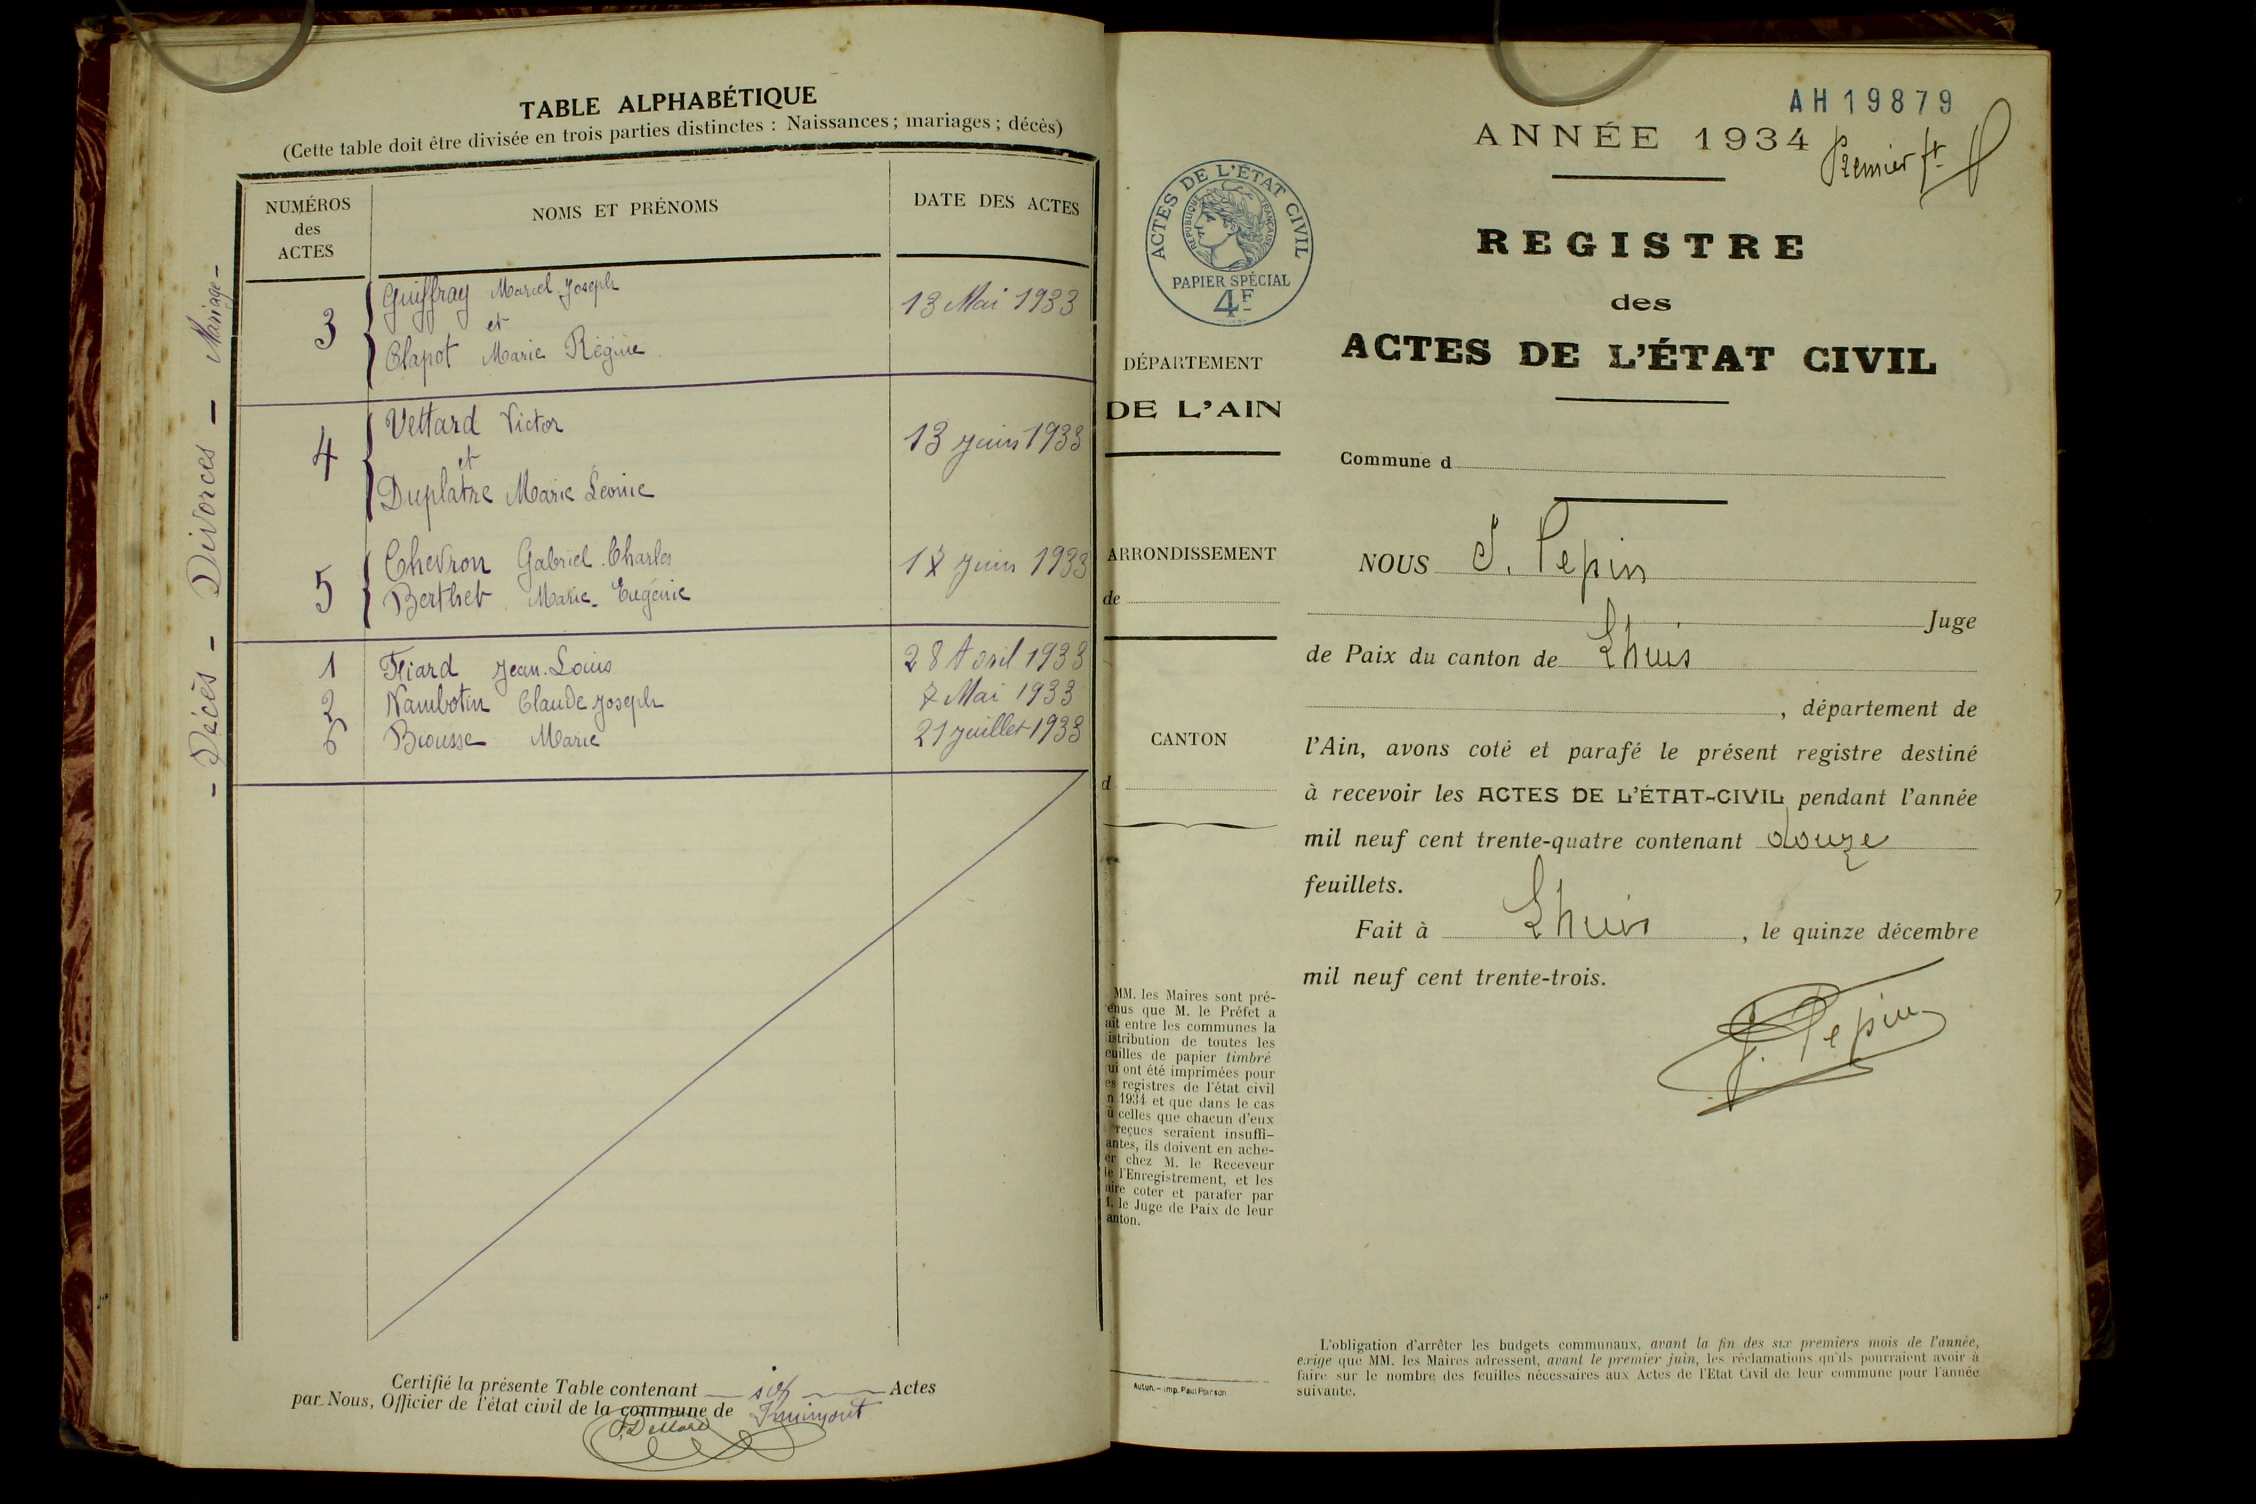 TABLE ALPHABÉTIQUE
(Cette table doit être divisée en trois parties distinctes : Naissances ; mariages ; décès)
NUMÉROS
des
ACTES
NOMS ET PRÉNOMS
DATE DES ACTES
- Décès - Divorces - Mariage -
3
Guiffray Marcel Joseph
et
Clapot Marie Régine
13 Mai 1933
4
Vettard Victor
et
Duplatre Marie Léonie
13 juin 1933
5
Chevron Gabriel Charles
Berthet Marie Eugénie
17 juin 1933
1 Fiard Jean Louis 28 Avril 1933
2 Nambotin Claude Joseph 7 Mai 1933
6 Brousse Marie 21 juillet 1933
Certifié la présente Table contenant six Actes
par Nous, Officier de l'état civil de la commune de
AH19879
ANNÉE 1934
Premier ft
REGISTRE
des
ACTES DE L'ÉTAT CIVIL
ACTES DE L'ÉTAT CIVIL
RÉPUBLIQUE FRANÇAISE
PAPIER SPÉCIAL
4F
DÉPARTEMENT
DE L'AIN
ARRONDISSEMENT
de
CANTON
d
Commune d
NOUS J. Pepin
Juge
de Paix du canton de Lhuis
, département de
l'Ain, avons coté et parafé le présent registre destiné
à recevoir les ACTES DE L'ÉTAT-CIVIL pendant l'année
mil neuf cent trente-quatre contenant douze
feuillets.
Fait à Lhuis, le quinze décembre
mil neuf cent trente-trois.
J. Pepin
MM. les Maires sont pré-
enus que M. le Préfet a
ait entre les communes la
istribution de toutes les
euilles de papier timbré
ui ont été imprimées pour
es registres de l'état civil
n 1934 et que dans le cas
ù celles que chacun d'eux
reçues seraient insuffi-
antes, ils doivent en ache-
er chez M. le Receveur
de l'Enregistrement, et les
aire coter et parafer par
M. le Juge de Paix de leur
anton.
Autun. - Imp. Paul Poirson
L'obligation d'arrêter les budgets communaux, avant la fin des six premiers mois de l'année,
exige que MM. les Maires adressent, avant le premier juin, les réclamations qu'ils pourraient avoir à
faire sur le nombre des feuilles nécessaires aux Actes de l'Etat Civil de leur commune pour l'année
suivante.